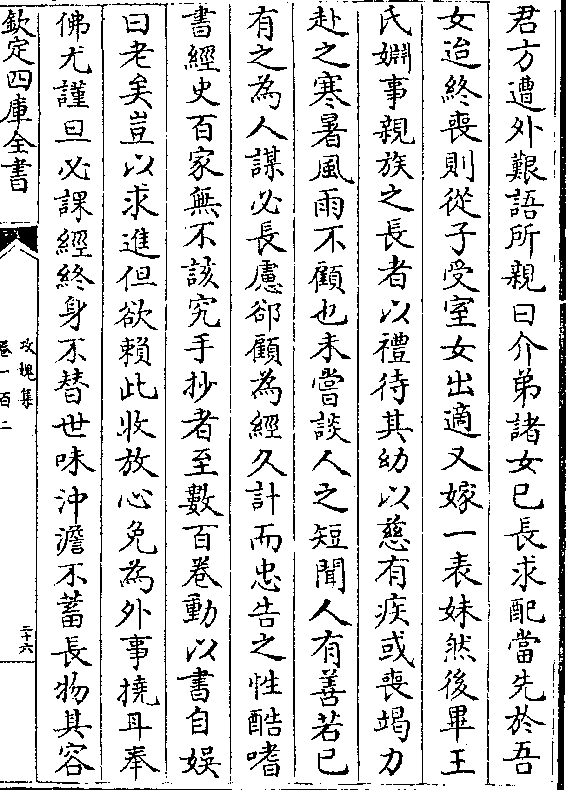 君方遭外艱語所親曰介弟諸女已長求配當先於吾
女迨終喪則從子受室女出適又嫁一表妹然後畢王
氏婣事親族之長者以禮待其幼以慈有疾或喪竭力
赴之寒暑風雨不顧也未嘗談人之短聞人有善若已
有之為人謀必長慮郤顧為經久計而忠告之性酷嗜
書經史百家無不該究手抄者至數百卷動以書自娯
曰老矣豈以求進但欲賴此收放心免為外事撓耳奉
佛尤謹旦必課經終身不替世味沖澹不蓄長物其容
欽定四庫全書
攻媿集
卷一百二
二十六